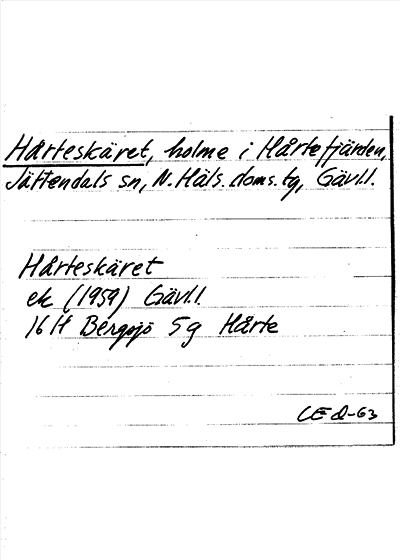 Hårteskäret, holme i Hårtefjärden,
Jättendals sn, N. Häls. doms. tg, Gävl.l.
Hårteskäret
ek (1959) Gävl.l.
16 H Bergsjö 5g Hårte
CE d-63